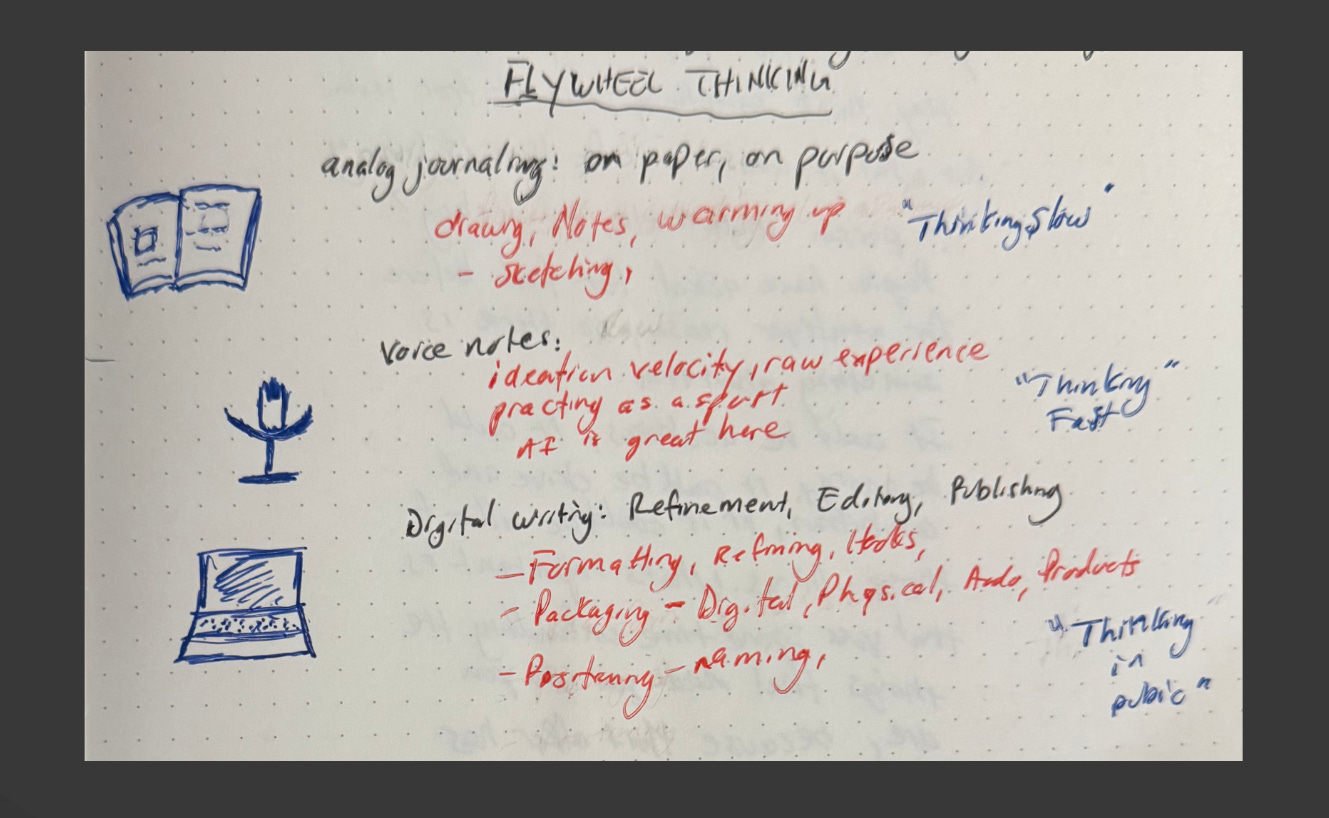 FLYWHEEL THINKING
analog journaling: on paper, on purpose
drawng, Notes, warming up
"Thinking Slow"
- sketching,
Voice notes:
ideation velocity, raw experience
practing as a sport
AI is great here
"Thinking
Fast"
Digital writing: Refinement, Editing, Publishing
- Formatting, Refining, Hooks,
- Packaging - Digital, Physical, Audo, Products
- Positioning - naming,
"Thinking
in
pubic"